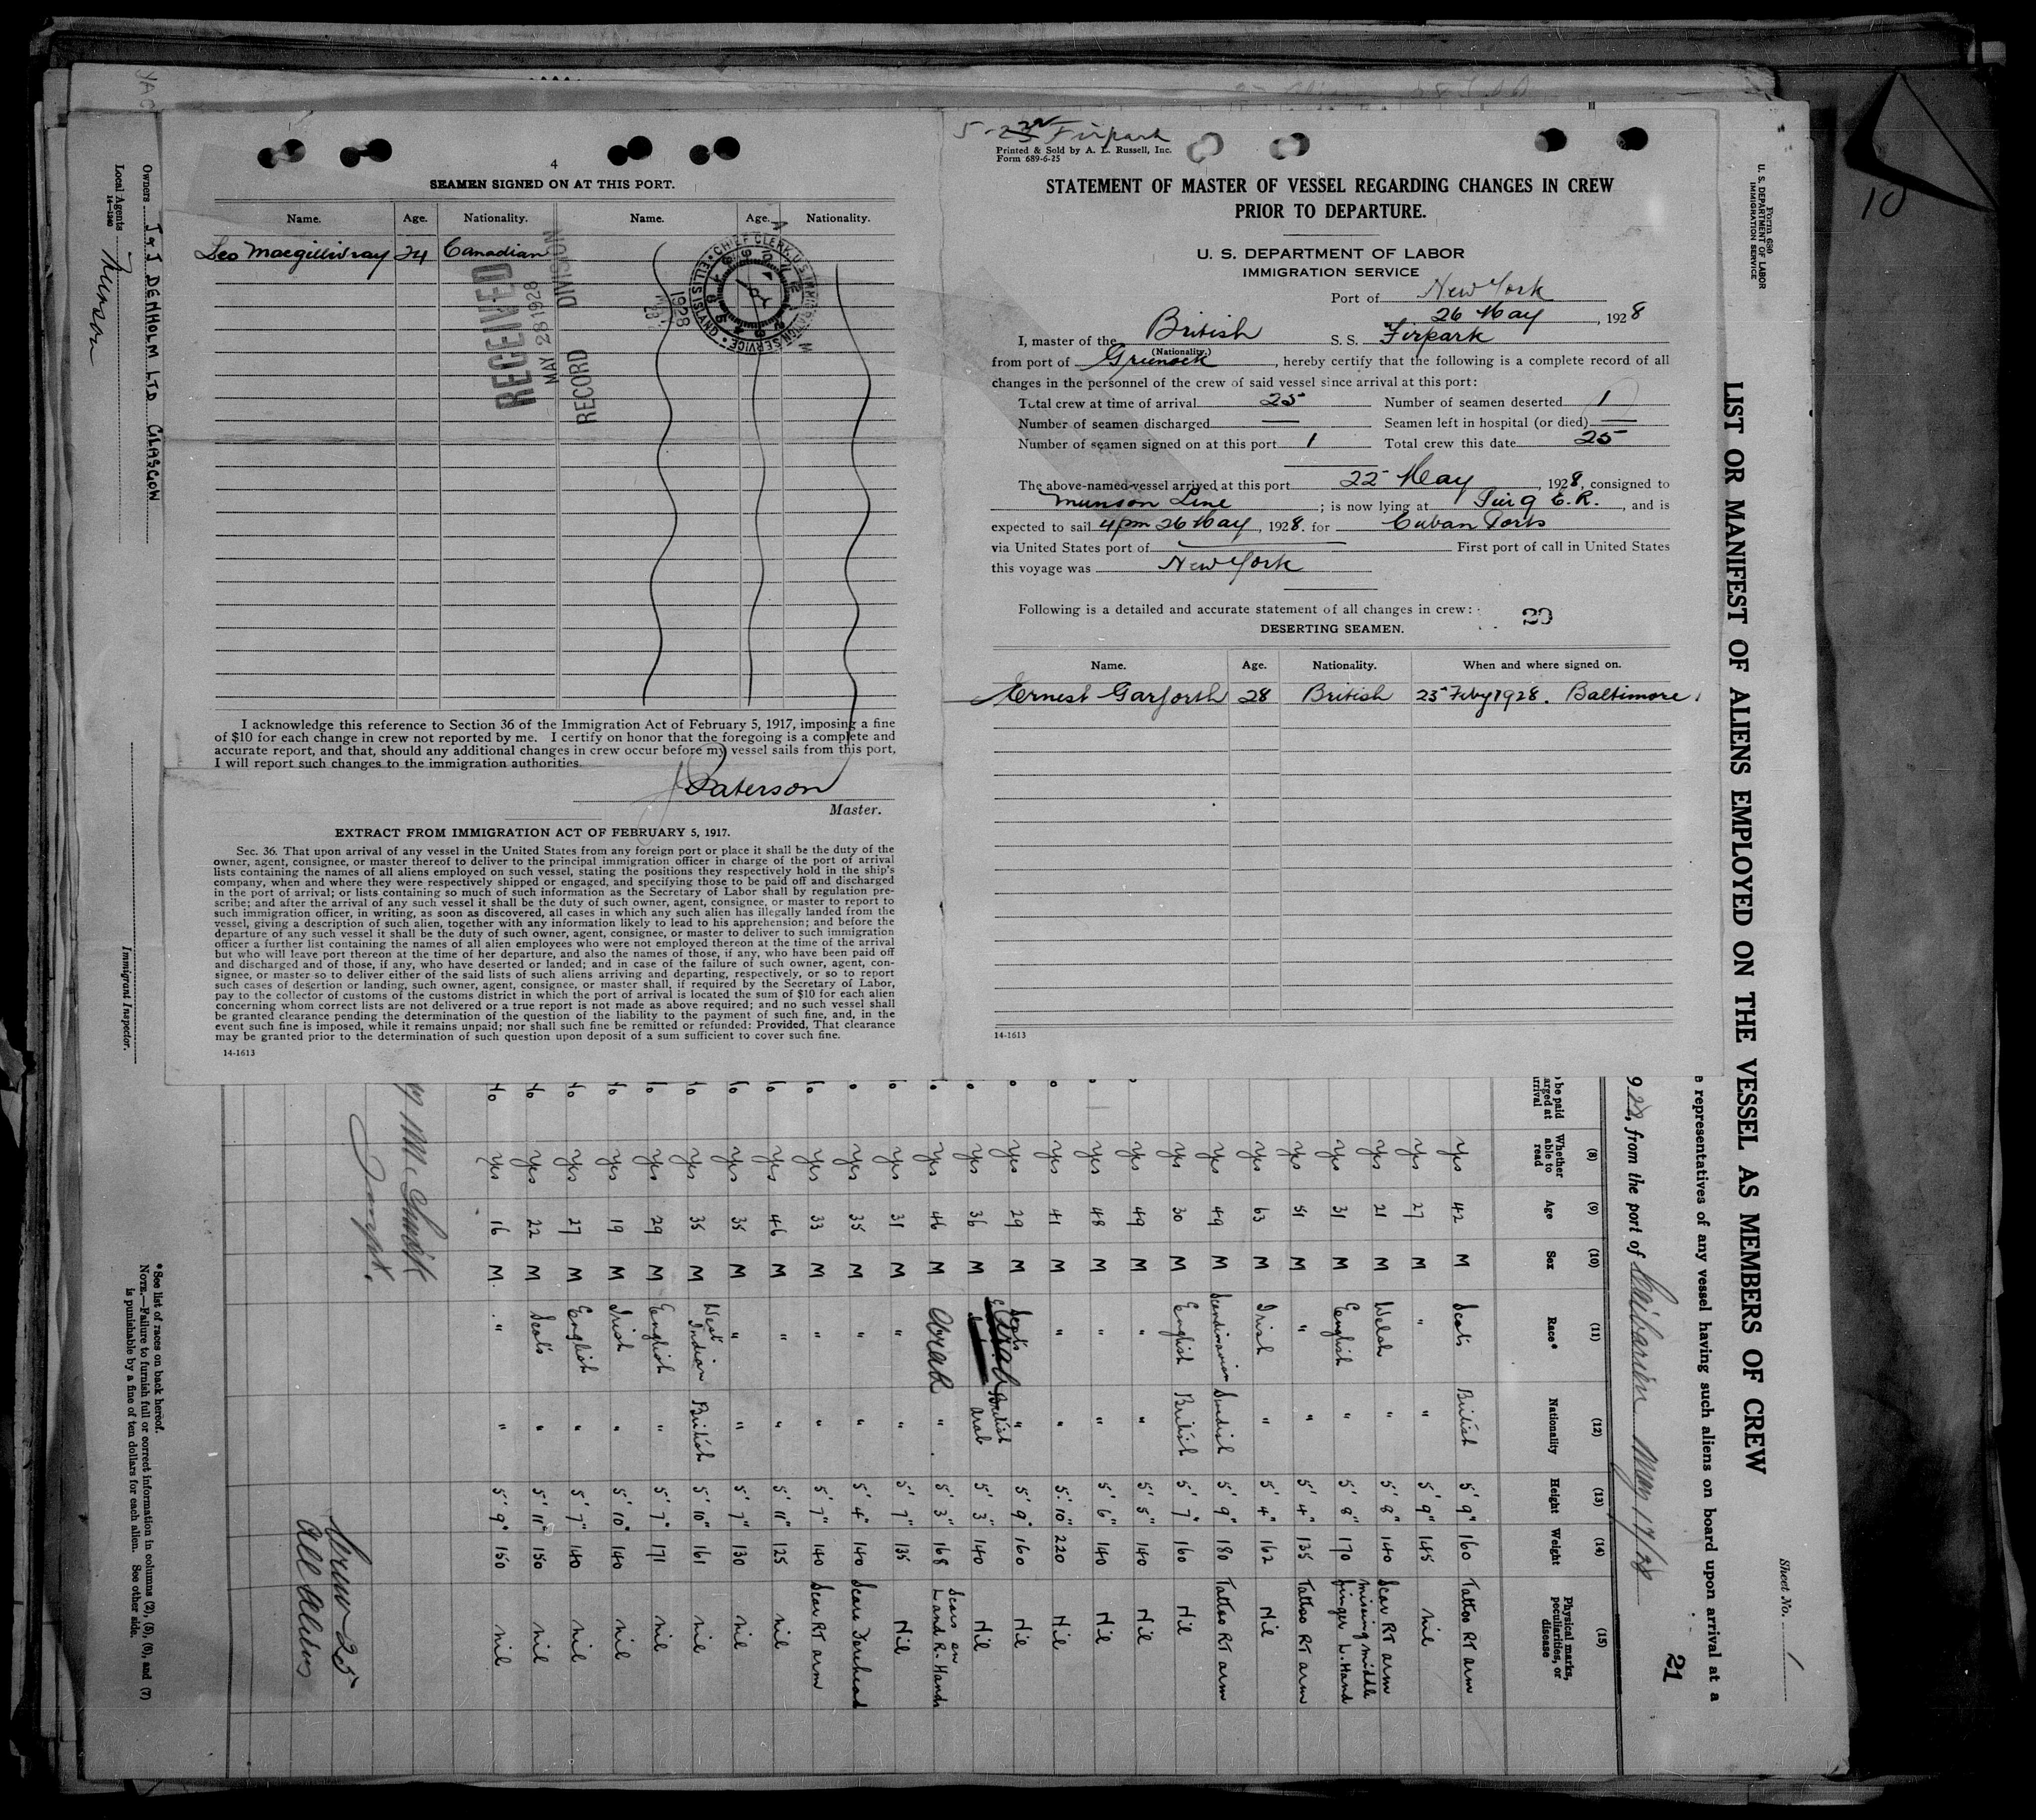 4
SEAMEN SIGNED ON AT THIS PORT.
Name. Age. Nationality. Name. Age. Nationality.
Leo Macgillivray 24 Canadian
RECEIVED
MAY 28 1928
RECORD DIVISION
CHIEF CLERK, U.S. IMMIGRATION SERVICE
ELLIS ISLAND
1928
I acknowledge this reference to Section 36 of the Immigration Act of February 5, 1917, imposing a fine
of $10 for each change in crew not reported by me. I certify on honor that the foregoing is a complete and
accurate report, and that, should any additional changes in crew occur before my vessel sails from this port,
I will report such changes to the immigration authorities.
J Paterson
Master.
EXTRACT FROM IMMIGRATION ACT OF FEBRUARY 5, 1917.
Sec. 36. That upon arrival of any vessel in the United States from any foreign port or place it shall be the duty of the
owner, agent, consignee, or master thereof to deliver to the principal immigration officer in charge of the port of arrival
lists containing the names of all aliens employed on such vessel, stating the positions they respectively hold in the ship's
company, when and where they were respectively shipped or engaged, and specifying those to be paid off and discharged
in the port of arrival; or lists containing so much of such information as the Secretary of Labor shall by regulation pre-
scribe; and after the arrival of any such vessel it shall be the duty of such owner, agent, consignee, or master to report to
such immigration officer, in writing, as soon as discovered, all cases in which any such alien has illegally landed from the
vessel, giving a description of such alien, together with any information likely to lead to his apprehension; and before the
departure of any such vessel it shall be the duty of such owner, agent, consignee, or master to deliver to such immigration
officer a further list containing the names of all alien employees who were not employed thereon at the time of the arrival
but who will leave port thereon at the time of her departure, and also the names of those, if any, who have been paid off
and discharged and of those, if any, who have deserted or landed; and in case of the failure of such owner, agent, con-
signee, or master so to deliver either of the said lists of such aliens arriving and departing, respectively, or so to report
such cases of desertion or landing, such owner, agent, consignee, or master shall, if required by the Secretary of Labor,
pay to the collector of customs of the customs district in which the port of arrival is located the sum of $10 for each alien
concerning whom correct lists are not delivered or a true report is not made as above required; and no such vessel shall
be granted clearance pending the determination of the question of the liability to the payment of such fine, and, in the
event such fine is imposed, while it remains unpaid; nor shall such fine be remitted or refunded: Provided, That clearance
may be granted prior to the determination of such question upon deposit of a sum sufficient to cover such fine.
14-1613
Firpark
Printed & Sold by A. L. Russell, Inc.
Form 689-6-25
STATEMENT OF MASTER OF VESSEL REGARDING CHANGES IN CREW
PRIOR TO DEPARTURE.
U. S. DEPARTMENT OF LABOR
IMMIGRATION SERVICE
Port of New York
26 May, 1928
I, master of the British S. S. Firpark
(Nationality.)
from port of Greenock, hereby certify that the following is a complete record of all
changes in the personnel of the crew of said vessel since arrival at this port:
Total crew at time of arrival 25 Number of seamen deserted 1
Number of seamen discharged — Seamen left in hospital (or died) —
Number of seamen signed on at this port 1 Total crew this date 25
The above-named vessel arrived at this port 22 May, 1928, consigned to
Munson Line; is now lying at Pier 9 E.R., and is
expected to sail 4pm 26 May, 1928. for Cuban Ports
via United States port of — First port of call in United States
this voyage was New York
Following is a detailed and accurate statement of all changes in crew:
29
DESERTING SEAMEN.
Name. Age. Nationality. When and where signed on.
Ernest Garforth 28 British 25 Feby 1928. Baltimore
14-1613
10
Form 680
U. S. DEPARTMENT OF LABOR
IMMIGRATION SERVICE
Sheet No. 1
LIST OR MANIFEST OF ALIENS EMPLOYED ON THE VESSEL AS MEMBERS OF CREW
representatives of any vessel having such aliens on board upon arrival at a
21
928, from the port of Caibarien May 17/28
be paid
arged at
rrival
(8) Whether able to read
(9) Age
(10) Sex
(11) Race*
(12) Nationality
(13) Height
(14) Weight
(15) Physical marks, peculiarities, or disease
yes 42 M Scots British 5' 9" 160 Tattoo RT arm
yes 27 M " " 5' 9" 145 nil
yes 21 M Welsh " 5' 8" 140 Scar RT arm
yes 31 M English " 5' 8" 170 missing middle finger L. Hand
yes 51 M " " 5' 4" 135 Tattoo RT arm
yes 63 M Irish " 5' 4" 162 Nil
yes 49 M Scandinavian Swedish 5' 9" 180 Tattoo RT arm
yes 30 M English British 5' 7" 160 Nil
yes 49 M " " 5' 5" 140 Nil
yes 48 M " " 5' 6" 140 Nil
yes 41 M " " 5' 10" 220 Nil
yes 29 M Scots " 5' 9" 160 Nil
yes 36 M British Arab 5' 3" 140 Nil
yes 46 M Arab " 5' 3" 168 Scars on L and R. Hands
yes 31 M " " 5' 7" 135 Nil
yes 35 M " " 5' 4" 140 Scars Forehead
yes 33 M " " 5' 7" 140 Scar RT arm
yes 46 M " " 5' 11" 125 nil
yes 35 M " " 5' 7" 130 nil
yes 35 M West Indian British 5' 10" 161 nil
yes 29 M English " 5' 7" 171 nil
yes 19 M Irish " 5' 10" 140 nil
yes 27 M English " 5' 7" 140 nil
yes 22 M Scots " 5' 11" 150 nil
yes 16 M " " 5' 9" 150 nil
Crew 25
All Aliens
*See list of races on back hereof.
NOTE.—Failure to furnish full or correct information in columns (2), (5), (6), and (7)
is punishable by a fine of ten dollars for each alien. See other side.
Immigrant Inspector.
Owners J & J DENHOLM LTD GLASGOW
Local Agents Munson
14-1240